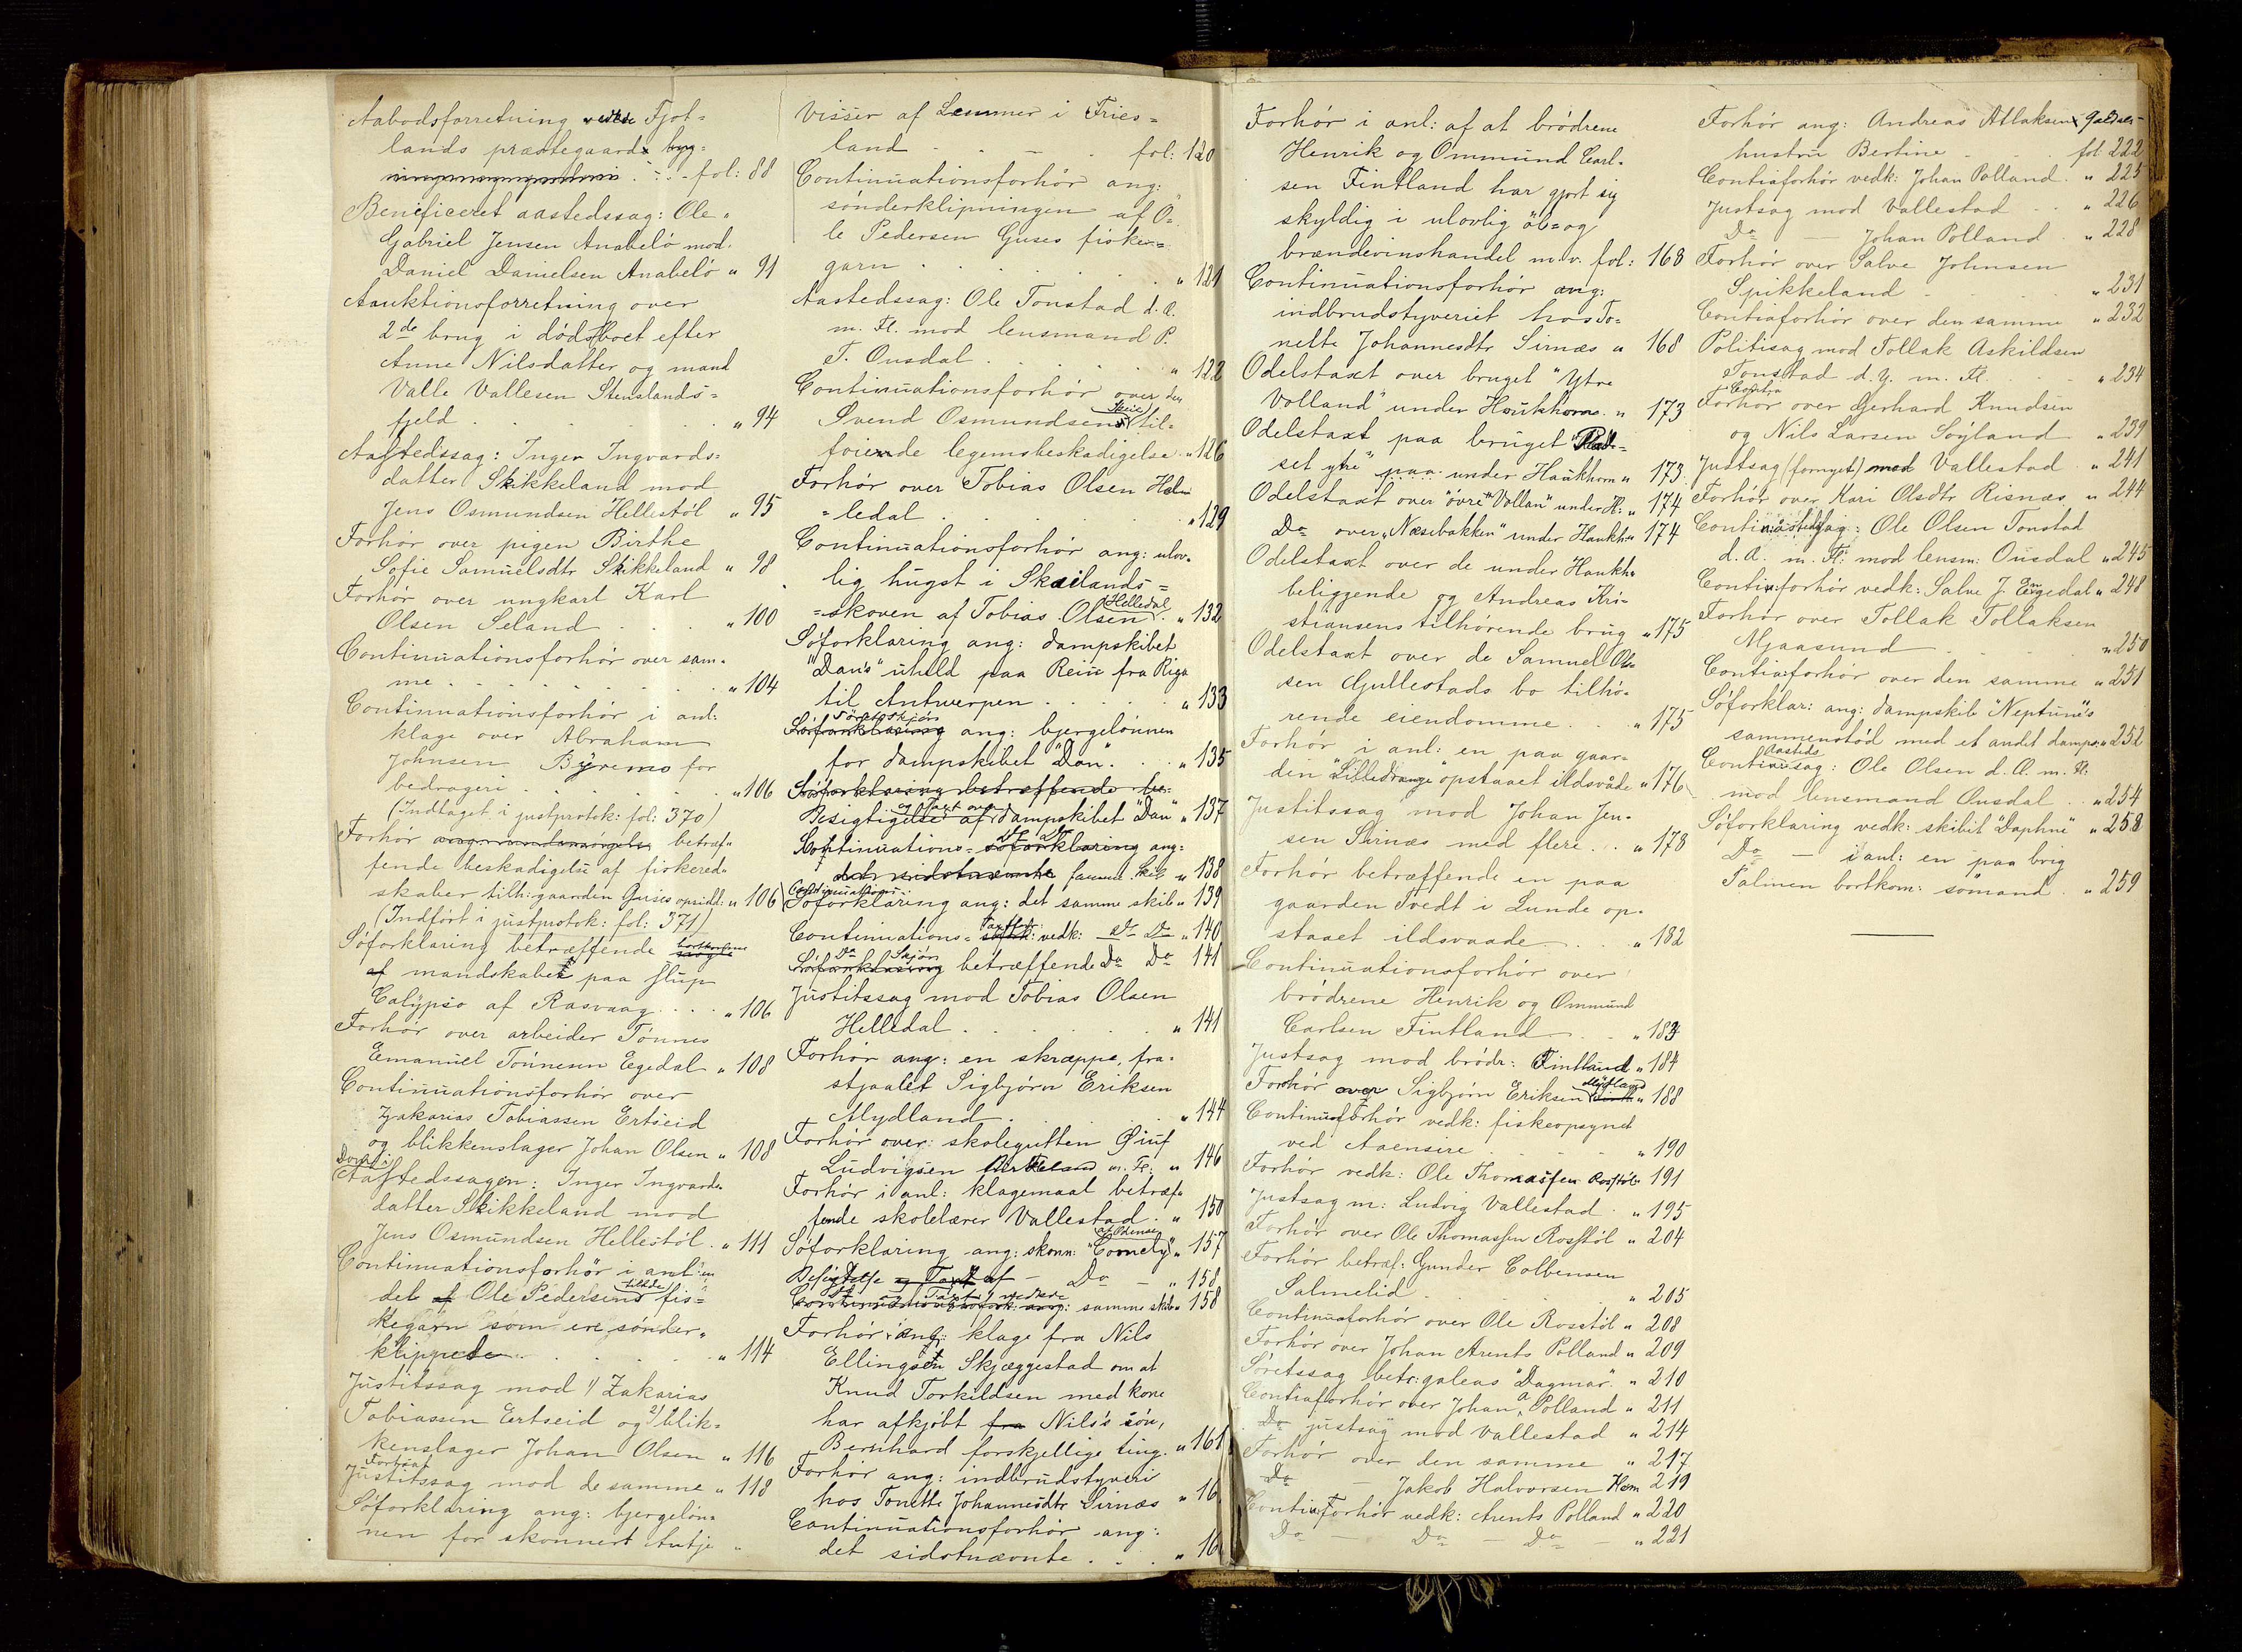 Aabodsforretning vedk. Fjot=
lands præstegaards byg=
fol: 88
Beneficeret aastedssag: Ole
Gabriel Jensen Anabelö mod
Daniel Danielsen Anabelö " 91
Auktionsforretning over
2de brug i dödsboet efter
Anne Nilsdatter og mand
Valle Vallesen Stenslands=
fjeld " 94
Aastedssag: Inger Ingvards=
datter Skikkeland mod
Jens Osmundsen Hellestöl " 95
Forhör over pigen Birthe
Sofie Samuelsdtr Skikkeland " 98
Forhör over ungkarl Karl
Olsen Seland " 100
Continuationsforhör over sam=
me " 104
Continuationsforhör i anl:
klage over Abraham
Johnsen Byremo for
bedrageri " 106
(Indtaget i justprotok: fol: 370)
Forhör betræf=
fende beskadigelse af fiskered=
skaber tilh: gaarden Guses opsidd: " 106
(Indfört i justprotok: fol: 371)
Söforklaring betræffende bortkomne
af mandskabet paa slup
Calypso af Rasvaag " 106
Forhör over arbeider Tönnes
Emanuel Tönnesen Egedal " 108
Continuationsforhör over
Zakarias Tobiassen Ertseid
og blikkenslager Johan Olsen " 108
Dom i
Aastedssagen: Inger Ingvards=
datter Skikkeland mod
Jens Osmundsen Hellestöl " 111
Continuationsforhör i anl: en
del af Ole Pedersens tilhör fis=
kegarn som ere sönder=
klippede " 114
Justitssag mod 1/ Zakarias
Tobiassen Ertseid og 2/ blik=
kenslager Johan Olsen " 116
Fortsat
Justitssag mod de samme " 118
Söforklaring ang: bjergelön=
nen for skonnert Antje
Visser af Lemmer i Fries=
land fol: 120
Continuationsforhör ang:
sönderklipningen af O=
le Pedersen Guses fiske=
garn " 121
Aastedssag: Ole Tonstad d. Æ.
m. Fl. mod lensmand P.
T. Ousdal " 122
Continuationsforhör over den
Svend Osmundsen Skeie til=
föiende legemsbeskadigelse " 126
Forhör over Tobias Olsen Hel=
=ledal " 129
Continuationsforhör ang: ulov=
lig hugst i Skailands=
=skoven af Tobias Olsen Helledal " 132
Söforklaring ang: dampskibet
"Dan's" uheld paa Rein fra Riga
til Antwerpen " 133
Söretsskjön
Söforklaring ang: bjergelönnen
for dampskibet "Dan" " 135
Söforklaring betræffende be=
Besigtigelse og Taxt over af dampskibet "Dan" " 137
Continuations= söforklaring ang:
det sidstnævnte samme skib " 138
Continuations
Söforklaring ang: det samme skib " 139
Continuations= vedk: Do Do " 140
Do Skjön
Söforklaring betræffende Do Do 141
Justitssag mod Tobias Olsen
Helledal " 141
Forhör ang: en skræppe, fra=
stjaalet Sigbjörn Eriksen
Mydland " 144
Forhör over: skolegutten
Ludvigsen m. Fl: " 146
Forhör i anl: klagemaal betræf=
fende skolelærer Vallestad " 150
Söforklaring ang: skonn: "Comely" af Odense " 157
Besigtelse og Taxt af — Do — " 158
samme skib " 158
Forhör i anl: klage fra Nils
Ellingsen Skjæggestad om at
Knud Torkildsen med kone
har afkjöbt fra Nils's sön,
Bernhard forskjellige ting. " 161
Forhör ang: indbrudstyveri
hos Tonette Johannesdtr Sirnæs " 16
Continuationsforhör ang:
det sidstnævnte " 16
Forhör i anl: af at brödrene
Henrik og Ommund Carl=
sen Fintland har gjort sig
skyldig i ulovlig öl= og
brændevinshandel m. v. fol: 168
Continuationsforhör ang:
indbrudstyveriet hos To=
nette Johannesdtr Sirnæs " 168
Odelstaxt over bruget "Ytre
Volland" under Haukhom " 173
Odelstaxt paa bruget "Plad=
set ytre" paa under Haukhom " 173
Odelstaxt over "övre Vollan" under H: " 174
Do over "Næsebakken" under Haukh: " 174
Odelstaxt over de under Haukh:
beliggende og Andreas Kri=
stiansens tilhörende brug " 175
Odelstaxt over de Samuel Ol=
sen Gullestads bo tilhö=
rende eiendomme " 175
Forhör i anl: en paa gaar=
den "Lilledrange" opstaaet ildsvåde " 176
Justitssag mod Johan Jen=
sen Sirnæs med flere " 178
Forhör betræffende en paa
gaarden Tvedt i Lunde op=
staaet ildsvaade " 182
Continuationsforhör over
brödrene Henrik og Ommund
Carlsen Fintland " 183
Justsag mod brödr: Fintland " 184
Forhör over Sigbjörn Eriksen Mydland " 188
Continuaforhör vedk: fiskeopsynet
ved Aaensire " 190
Forhör vedk: Ole Thomassen Rosstöl " 191
Justsag m: Ludvig Vallestad " 195
Forhör over Ole Thomassen Rosstöl " 204
Forhör betræf: Gunder Colbensen
Salmelid " 205
Continuaforhör over Ole Rosstöl " 208
Forhör over Johan Arents Polland " 209
Söretssag betr: galeas "Dagmar" " 210
Contiaforhör over Johan A. Polland " 211
Do justsag mod Vallestad " 214
Forhör over den samme " 217
Do — Jakob Halvorsen Hem 219
Continforhör vedk: Arents Polland " 220
Do — Do — Do — " 221
Forhör ang: Andreas Atlaksen
hustru Bertine fol: 222
Contiaforhör vedk: Johan Polland " 225
Justsag mod Vallestad " 226
Do — Johan Polland " 228
Forhör over Salve Johnsen
Spikkeland " 231
Contiaforhör over den samme " 232
Politisag mod Tollak Askildsen
Tonstad d. Y. m. Fl. " 234
Contia
Forhör over Gerhard Knudsen
og Nils Larsen Söyland " 239
Justsag (fornyet) mod Vallestad " 241
Forhör over Kari Olsdtr Risnæs " 244
Continaastedssag: Ole Olsen Tonstad
d. Æ. m. Fl: mod lensm: Ousdal " 245
Contiaforhör vedk: Salve J. Engedal " 248
Forhör over Tollak Tollaksen
Mjaasund " 250
Contiaforhör over den samme " 251
Söforklar: ang: dampskib "Neptune's
sammenstöd med et andet damps: " 252
Aasteds
Continuasag: Ole Olsen d. Æ. m. Fl.
mod lensmand Ousdal " 254
Söforklaring vedk: skibet "Daphne" " 258
Do — i anl: en paa brig
Palmen bortkom: sömand " 259